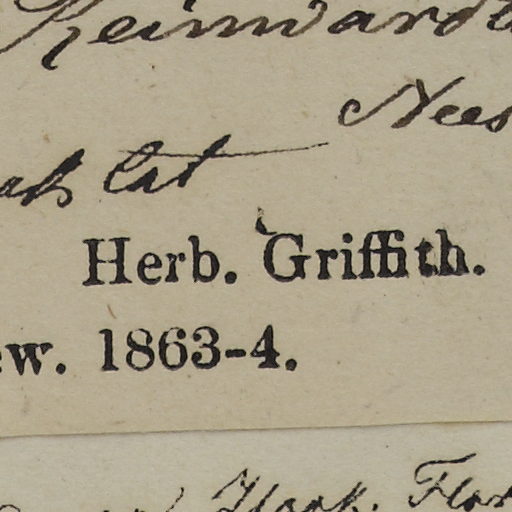 Reinwardt
Nees
Cat
Herb. Griffith.
ew. 1863-4.
Hook. Flor